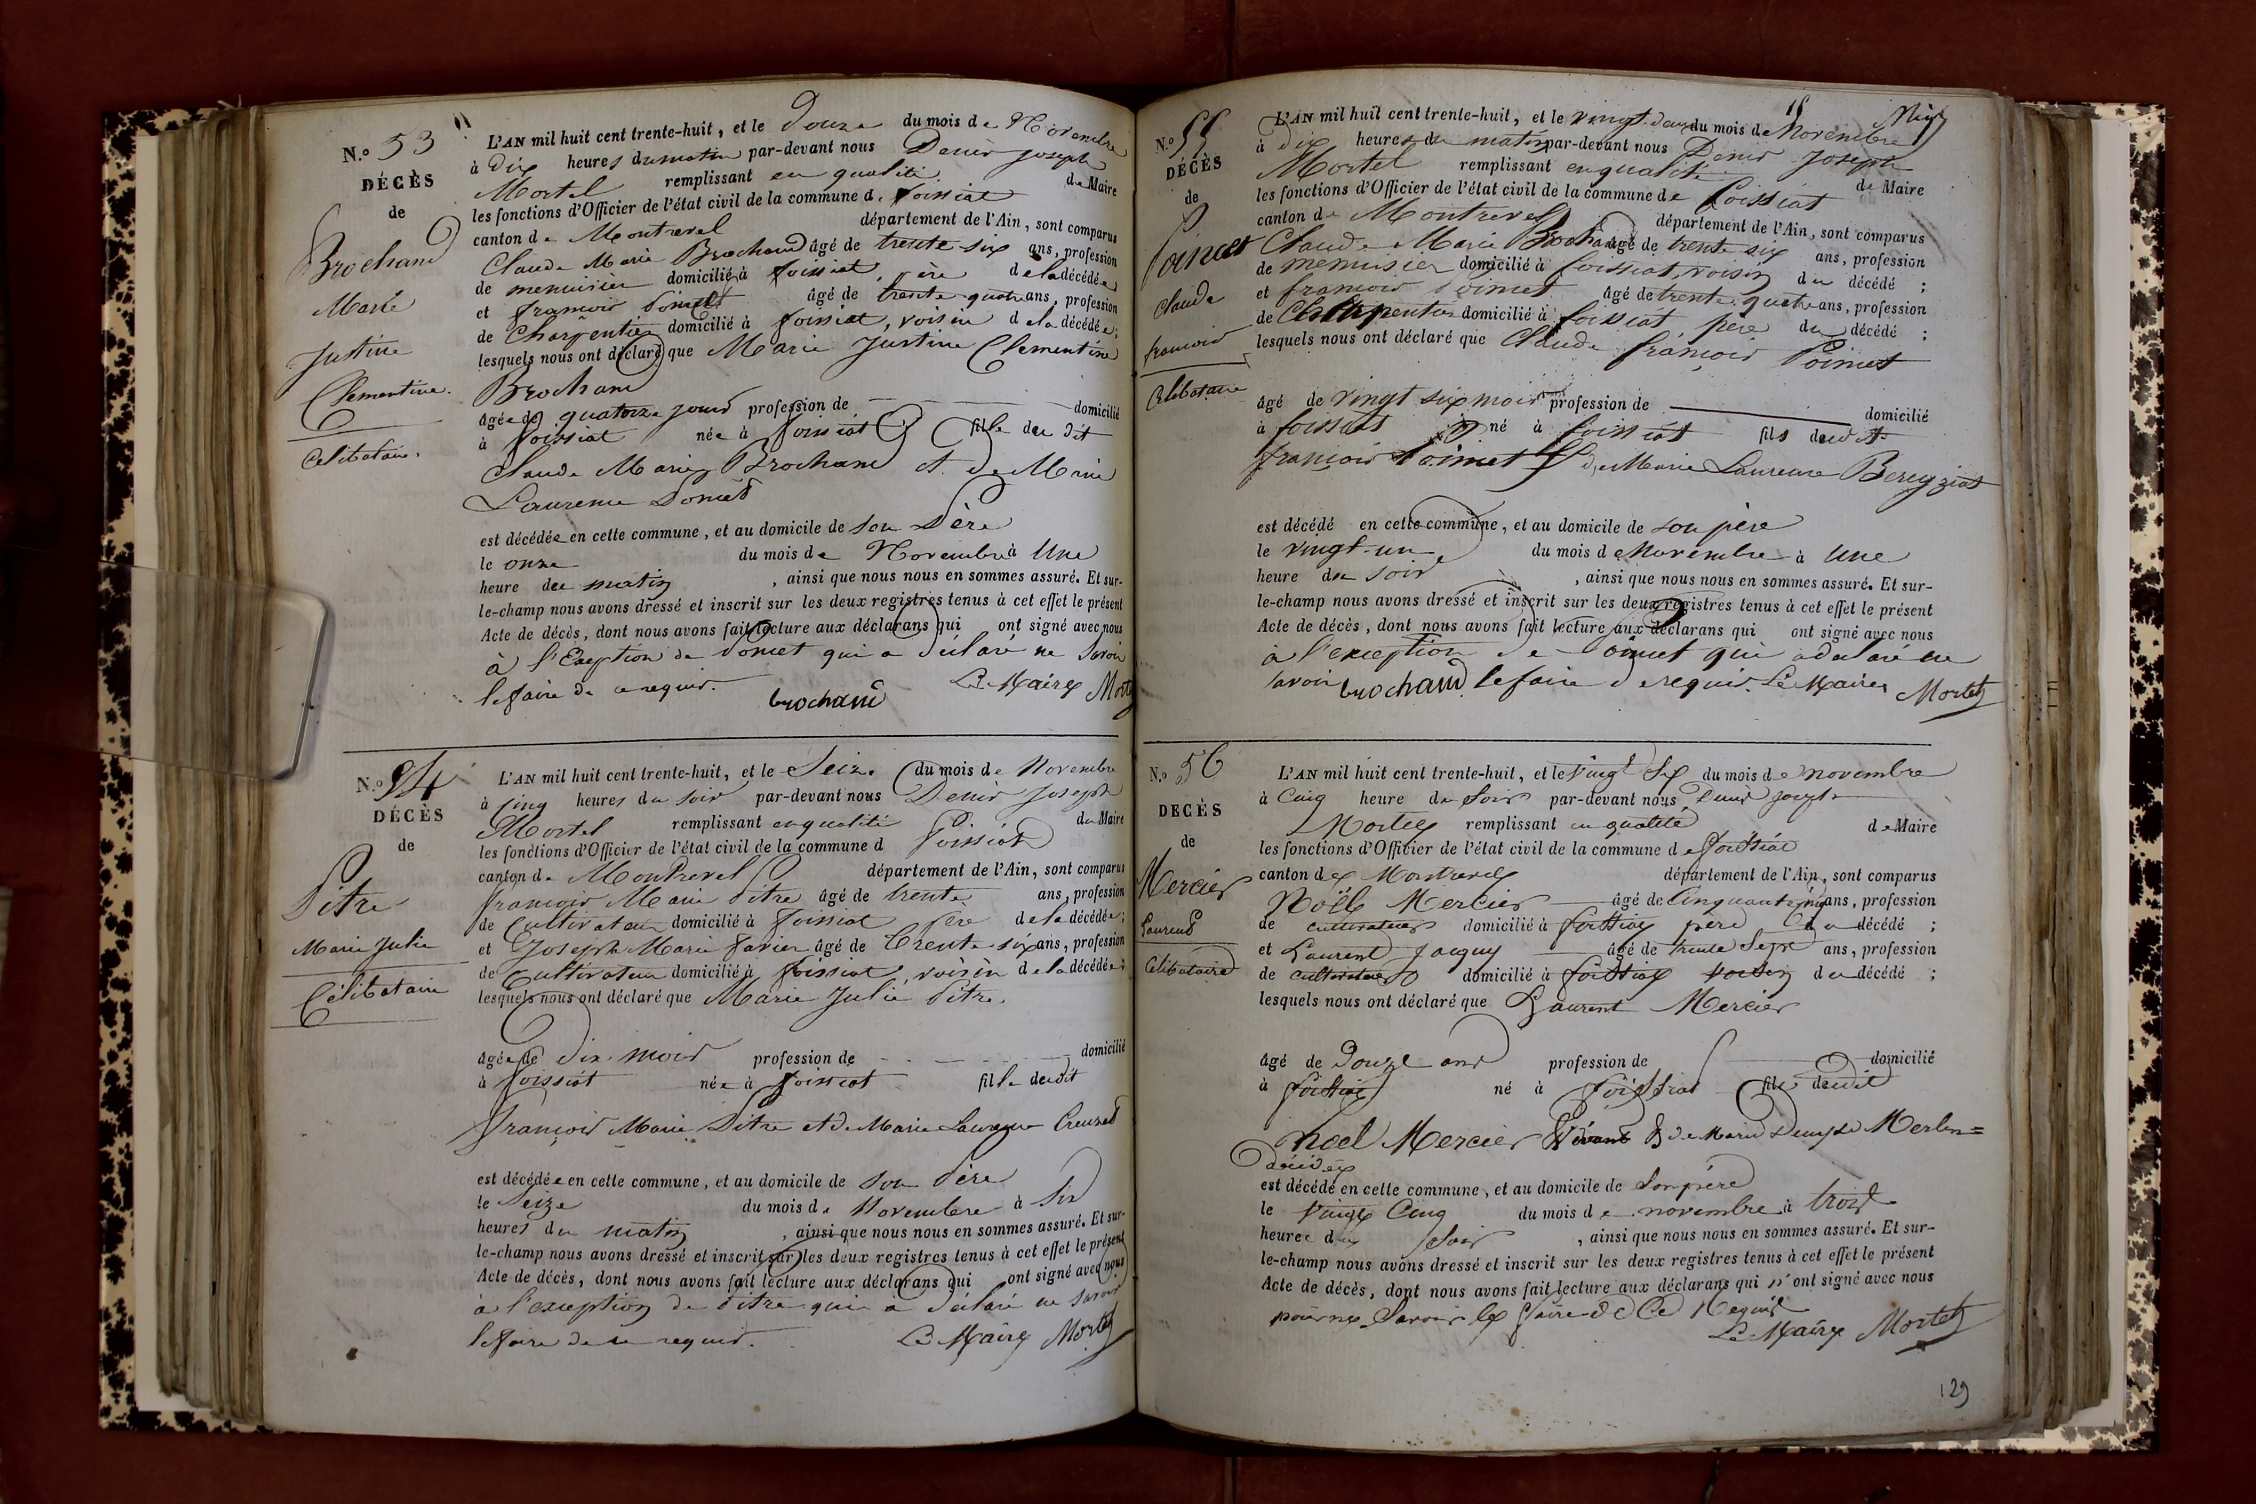 N.o 53
DÉCÈS
de
Brochand
Marie
Justine
Clementine.
Celibataire.
L'AN mil huit cent trente-huit, et le Douze du mois de Novembre
à Dix heures du matin par-devant nous Denis Joseph
Mortel remplissant en qualité de Maire
les fonctions d'Officier de l'état civil de la commune de foissiat
canton de Montrevel département de l'Ain, sont comparus
Claude Marie Brochand âgé de trente-six ans, profession
de menuisier domicilié à foissiat, père de la décédée
et françois Poncet âgé de trente quatre ans, profession
de Charpentier domicilié à foissiat, voisin de la décédée;
lesquels nous ont déclaré que Marie Justine Clementine
Brochand
âgée de quatorze jours profession de domicilié
à foissiat née à foissiat fille du dit
Claude Marie Brochand et de Marie
Laurence
est décédée en cette commune, et au domicile de son Père
le onze du mois de Novembre à Une
heure du matin , ainsi que nous nous en sommes assuré. Et sur-
le-champ nous avons dressé et inscrit sur les deux registres tenus à cet effet le présent
Acte de décès, dont nous avons fait lecture aux déclarans qui ont signé avec nous
à l'Exeption de Poncet qui a déclaré ne Savoir
le faire de ce requis. Le Maire Mortel
brochand
N.o 54
DÉCÈS
de
Pitre
Marie Julie
Célibataire
L'AN mil huit cent trente-huit, et le Seize du mois de Novembre
à cinq heures du soir par-devant nous Denis Joseph
Mortel remplissant en qualité de Maire
les fonctions d'Officier de l'état civil de la commune d foissiat
canton de Montrevel département de l'Ain, sont comparus
françois Marie Pitre âgé de trente ans, profession
de Cultivateur domicilié à foissiat père de la décédée;
et Joseph Marie favier âgé de trente six ans, profession
de Cultivateur domicilié à foissiat, voisin de la décédée;
lesquels nous ont déclaré que Marie Julie Pitre
âgée de Dix mois profession de domicilié
à foissiat née à foissiat fille du dit
françois Marie Pitre et de Marie Laurence Creuzet
est décédée en cette commune, et au domicile de son Père
le Seize du mois de Novembre à Six
heures du matin , ainsi que nous nous en sommes assuré. Et sur-
le-champ nous avons dressé et inscrit sur les deux registres tenus à cet effet le présent
Acte de décès, dont nous avons fait lecture aux déclarans qui ont signé avec nous
à l'exception de Pitre qui a déclaré ne savoir
le faire de ce requis. Le Maire Mortel
N.o 55
DÉCÈS
de
Poincet
Claude
françois
Célibataire
L'AN mil huit cent trente-huit, et le vingt-deux du mois de Novembre
à dix heures du matin par-devant nous Denis Joseph
Mortel remplissant en qualité de Maire
les fonctions d'Officier de l'état civil de la commune de foissiat
canton de Montrevel département de l'Ain, sont comparus
Claude Marie Brochand âgé de trente six ans, profession
de menuisier domicilié à foissiat, voisin du décédé ;
et françois Poincet âgé de trente quatre ans, profession
de Charpentier domicilié à foissiat, père du décédé ;
lesquels nous ont déclaré que Claude françois Poincet
âgé de vingt six mois profession de domicilié
à foissiat né à foissiat fils du dit
françois Poincet & de Marie Laurence Bereyziat
est décédé en cette commune, et au domicile de son père
le vingt-un du mois de Novembre à Une
heure du soir , ainsi que nous nous en sommes assuré. Et sur-
le-champ nous avons dressé et inscrit sur les deux registres tenus à cet effet le présent
Acte de décès, dont nous avons fait lecture aux déclarans qui ont signé avec nous
à l'exception de Poincet qui a declaré ne
savoir brochand le faire de requis. Le Maire Mortel
N.o 56
DÉCÈS
de
Mercier
Laurent
Celibataire
L'AN mil huit cent trente-huit, et le vingt six du mois de novembre
à Cinq heure du soir par-devant nous Denis Joseph
Mortel remplissant en qualité de Maire
les fonctions d'Officier de l'état civil de la commune de foissiat
canton de Montrevel département de l'Ain, sont comparus
Noël Mercier âgé de Cinquante cinq ans, profession
de cultivateur domicilié à foissiat père du décédé ;
et Laurent Janguy âgé de trente Sept ans, profession
de cultivateur domicilié à foissiat voisin du décédé ;
lesquels nous ont déclaré que Laurent Mercier
âgé de Douze ans profession de domicilié
à foissiat né à foissiat fils du dit
Noel Mercier Vivant & de Marie Denyse Merlin=
décédée
est décédé en cette commune, et au domicile de Son père
le Vingt Cinq du mois de novembre à trois
heures du Soir , ainsi que nous nous en sommes assuré. Et sur-
le-champ nous avons dressé et inscrit sur les deux registres tenus à cet effet le présent
Acte de décès, dont nous avons fait lecture aux déclarans qui n'ont signé avec nous
pour ne Savoir le faire de Ce Requis
Le Maire Mortel
129